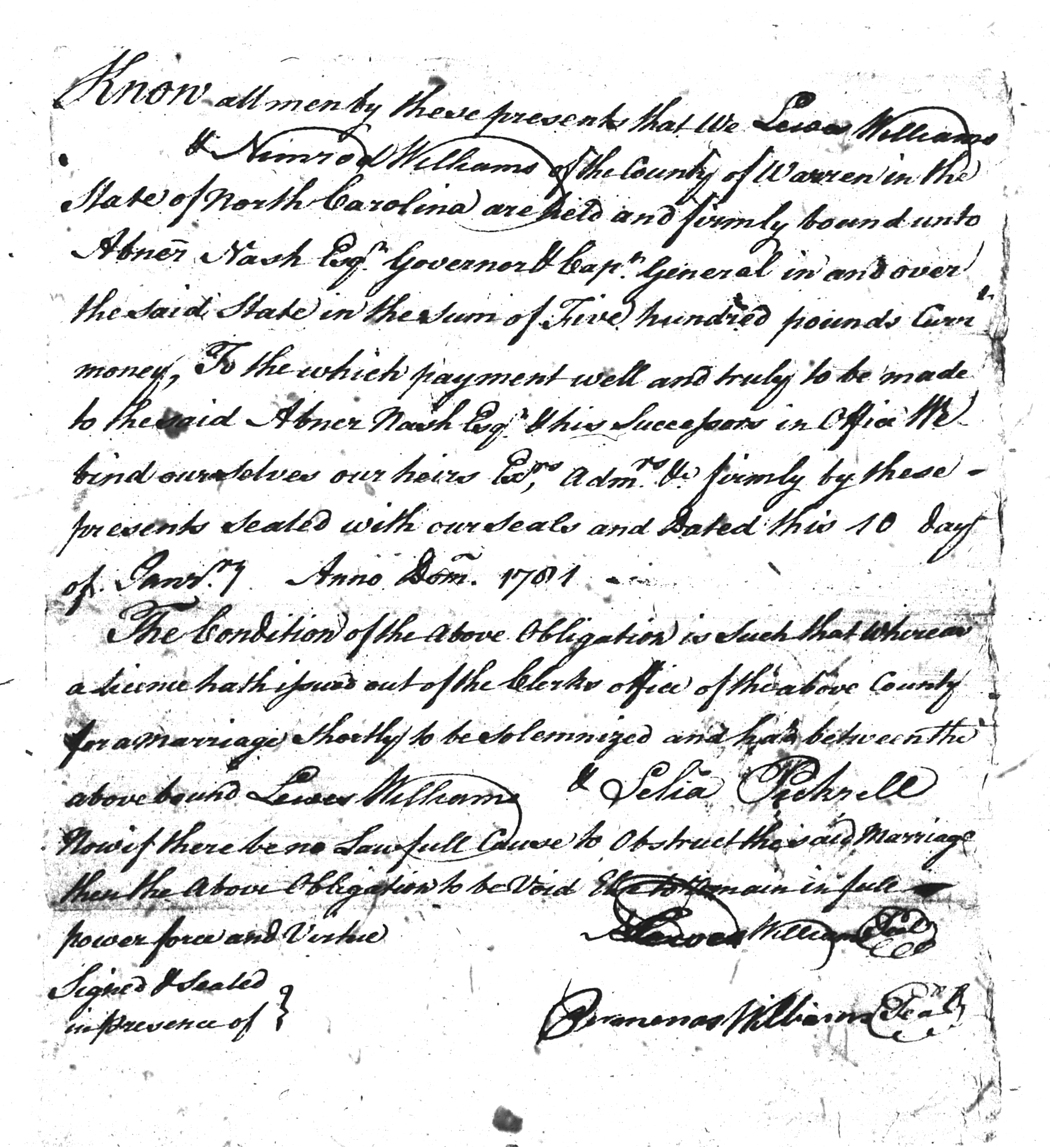 Know all men by these presents that We Lewes Williams
& Nimrod Williams of the County of Warren in the
State of North Carolina are held and firmly bound unto
Abner Nash Esqr. Governor & Capn. General in and over
the said State in the sum of Five hundred pounds Curr't
money, To the which payment well and truly to be made
to the said Abner Nash Esqr. & his Successors in Office We
bind ourselves our heirs Exrs, Admrs. &c firmly by these -
presents sealed with our seals and Dated this 10 day
of Janry Anno Dom. 1781
The Condition of the Above Obligation is Such that Whereas
a licence hath issued out of the Clerks office of the above County
for a Marriage Shortly to be solemnized and had between the
above bound Lewes Williams & Selia Pickrell
Now if there be no Lawfull Cause to Obstruct the said Marriage
then the Above Obligation to be Void Else to Remain in full
power force and Virtue Lewes Williams Seal
Signed & Sealed
in presence of Permenas Williams Seal